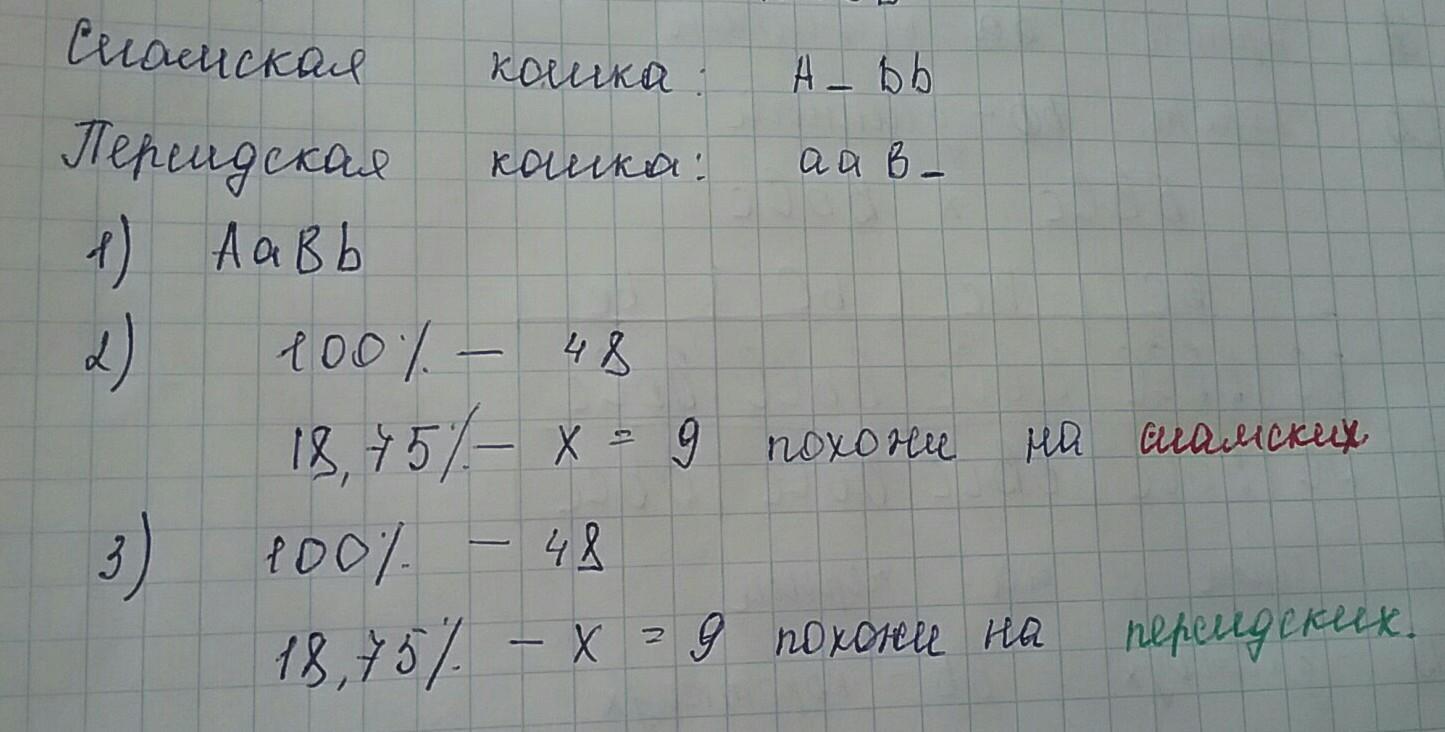 Сиамская кошка: A_bb
Персидская кошка: aaB_
1) AaBb
2) 100% — 48
18,75% — x = 9 похожи на сиамских.
3) 100% — 48
18,75% — x = 9 похожи на персидских.